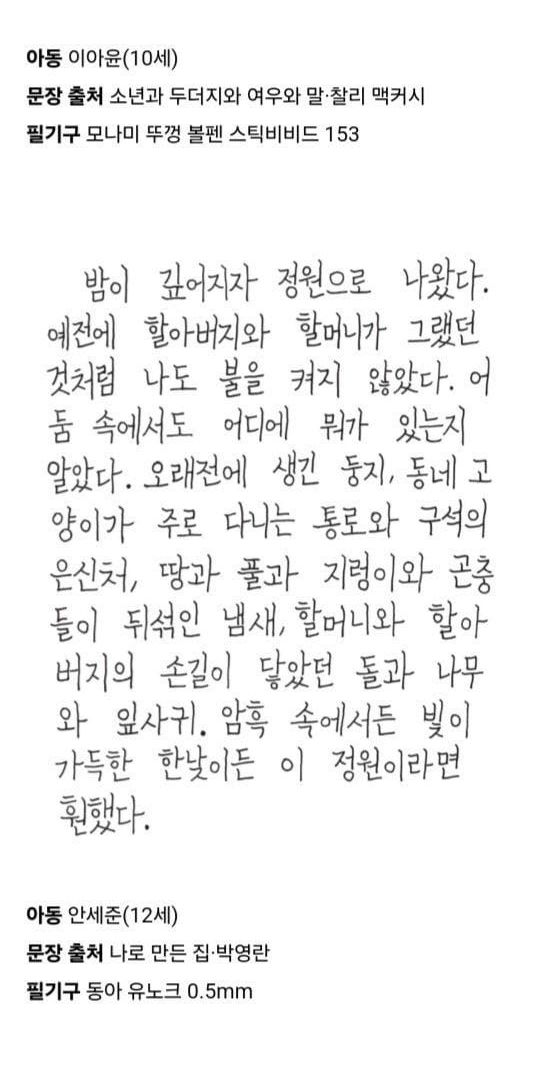 아동 이아윤(10세)
문장 출처 소년과 두더지와 여우와 말·찰리 맥커시
필기구 모나미 뚜껑 볼펜 스틱비비드 153
밤이 깊어지자 정원으로 나왔다.
예전에 할아버지와 할머니가 그랬던
것처럼 나도 불을 켜지 않았다. 어
둠 속에서도 어디에 뭐가 있는지
알았다. 오래전에 생긴 둥지, 동네 고
양이가 주로 다니는 통로와 구석의
은신처, 땅과 풀과 지렁이와 곤충
들이 뒤섞인 냄새, 할머니와 할아
버지의 손길이 닿았던 돌과 나무
와 잎사귀. 암흑 속에서든 빛이
가득한 한낮이든 이 정원이라면
훤했다.
아동 안세준(12세)
문장 출처 나로 만든 집·박영란
필기구 동아 유노크 0.5mm